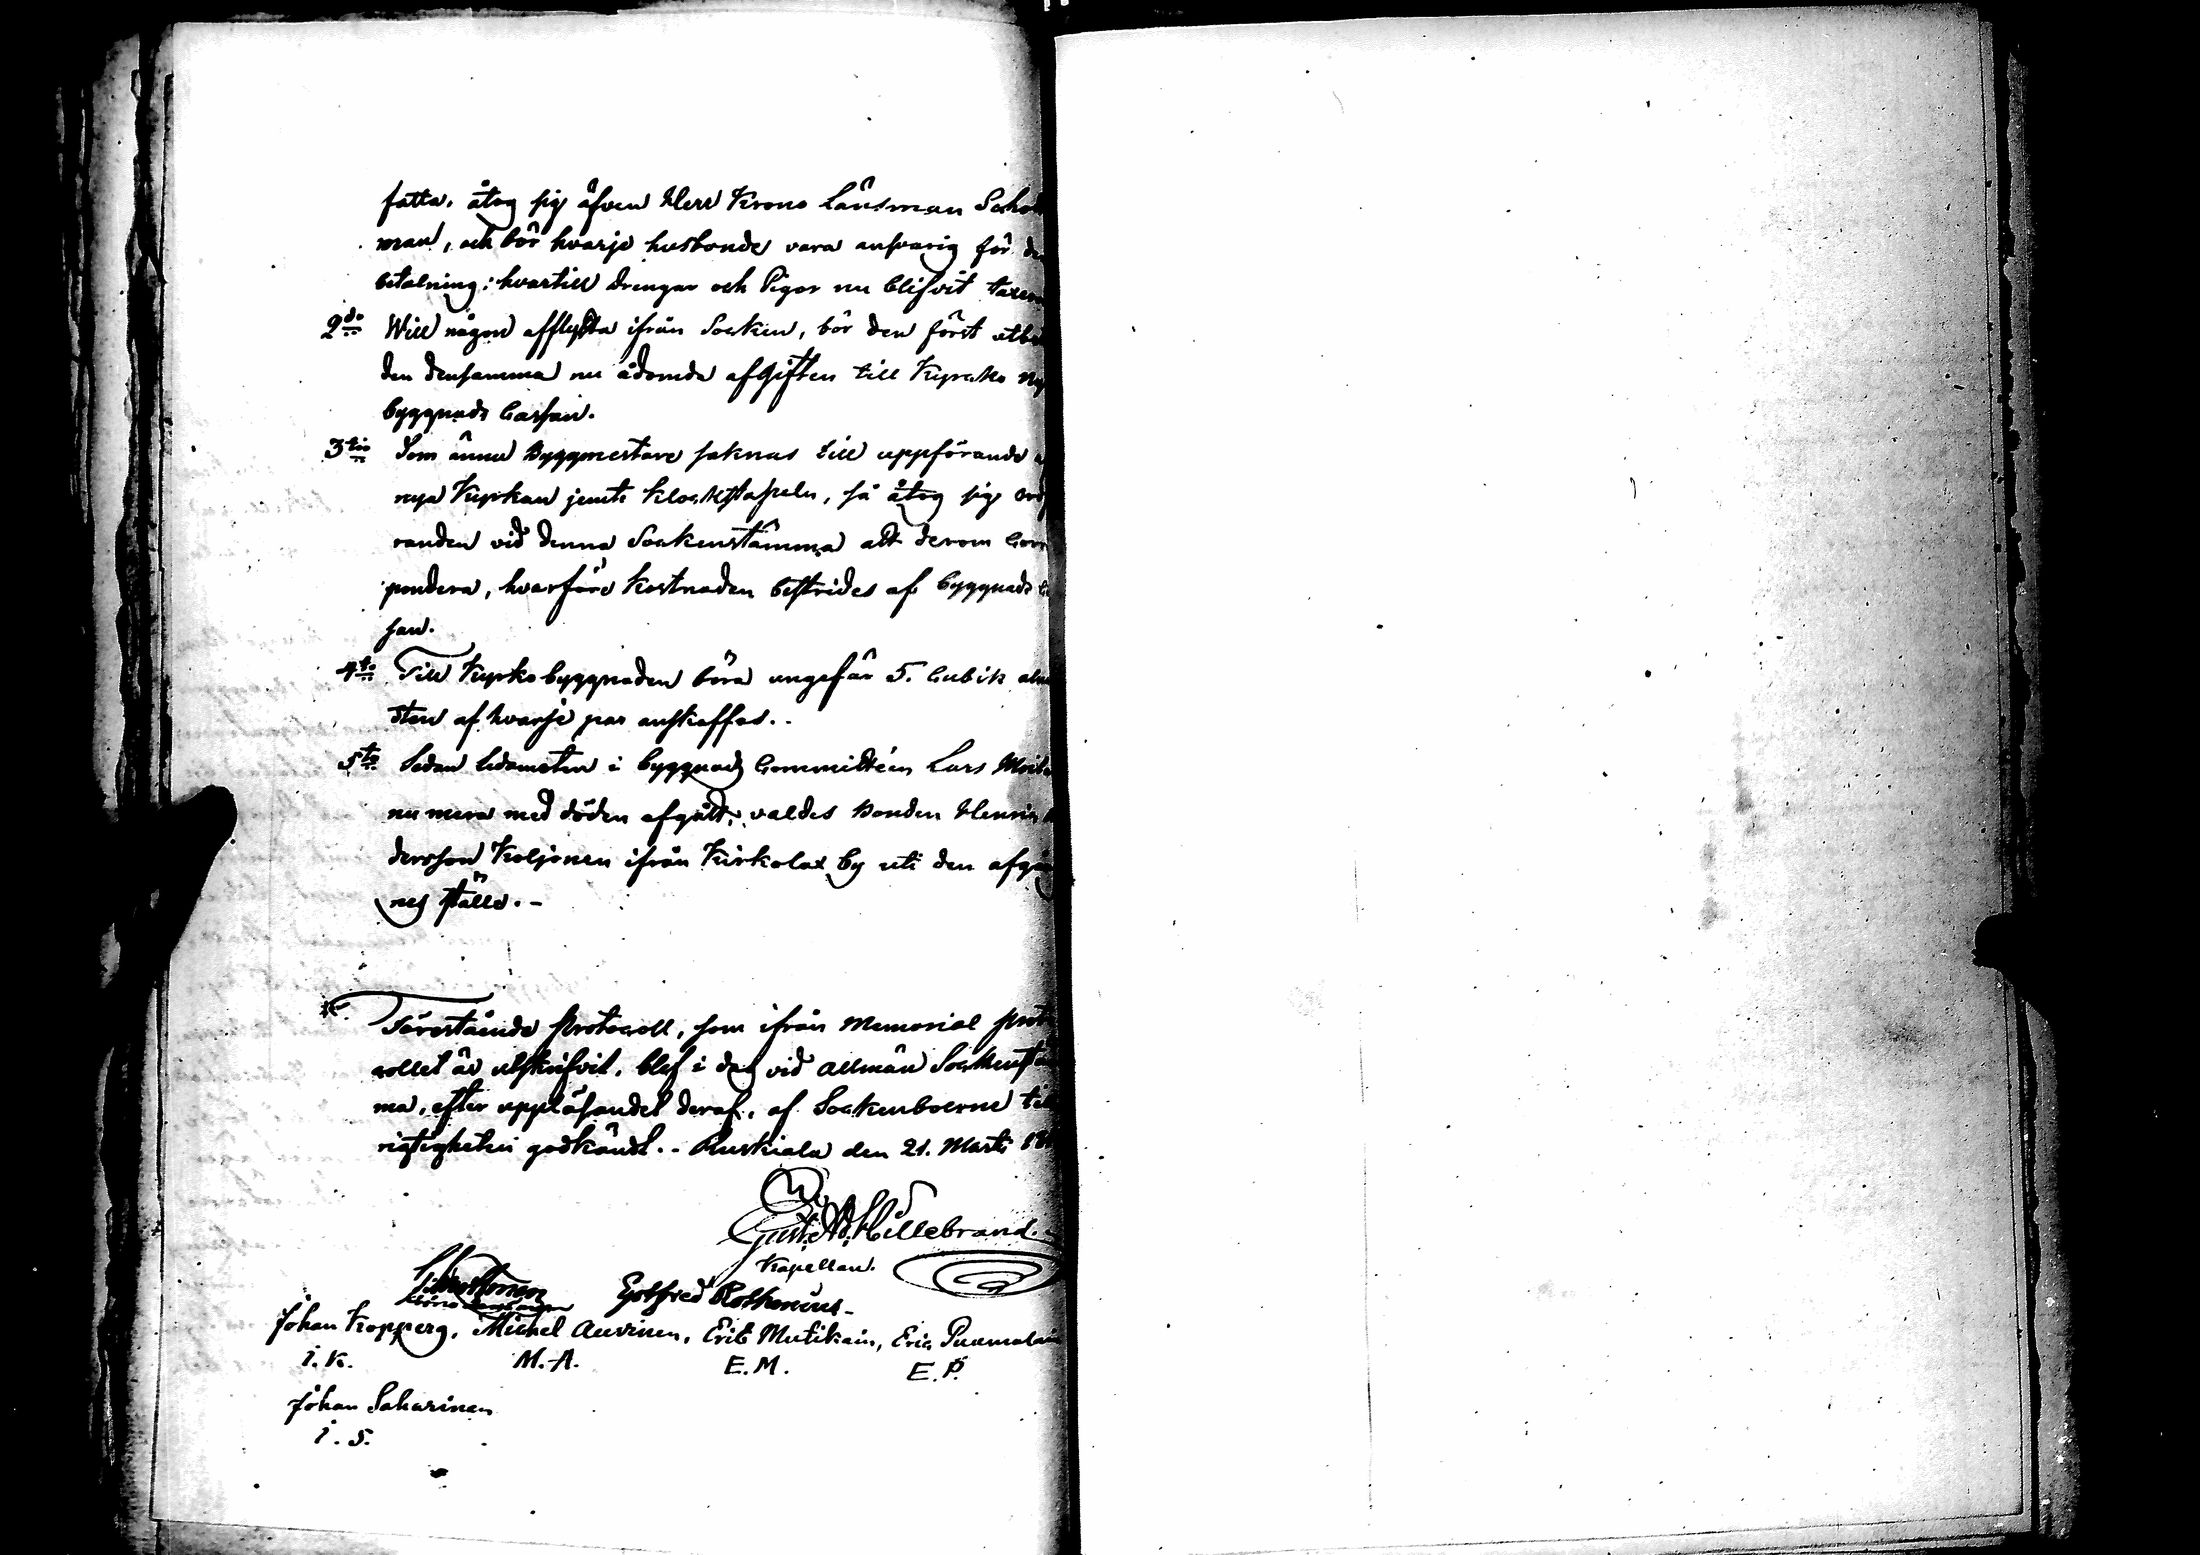 fatta, åtog sig äfven Herr Krono Länsman
man, och bör hvarje husbonde vara ansvarig för
betalning, hvartill Drengar och Pigor nu blifvit
2do Will någon afflytta ifrån Socken, bör den först
den densamma nu ådömda afgiften till Kyrcko
byggnads Cassan.
3tio Som ännu Byggmestare saknas till uppförande
nya Kyrkan jemte Klockstapeln, så åtog sig
randen vid denna Sockenstämma att derom
pondera, hvarföre Kostnaden bestrides af byggnads
san.
4to Till Kyrkobyggnaden böra ungefär 5. Cubik
sten af hvarje par anskaffas..
5to Sedan Ledamoten i byggnads Committéen Lars
numera med döden afgått, valdes Bonden Henric
dersson Koljonen ifrån Kirkolax by uti den
nes ställe.-
Förestående Protocoll, som ifrån Memorial
collet är utskrifvit, blef i dag vid allmän
ma, efter uppläsandet deraf, af Sockenboerne
rigtigheten godkändt.. Ruskiala den 21. Marti
Gust. Ad. Hillebrand.
Kapellan.
Gotfried Rothenius
Johan Kopperg, Michel Auvinen, Erik Mutikain, Eric
i.K. M.A. E.M. E.P.
Johan Saharinen
i.S.